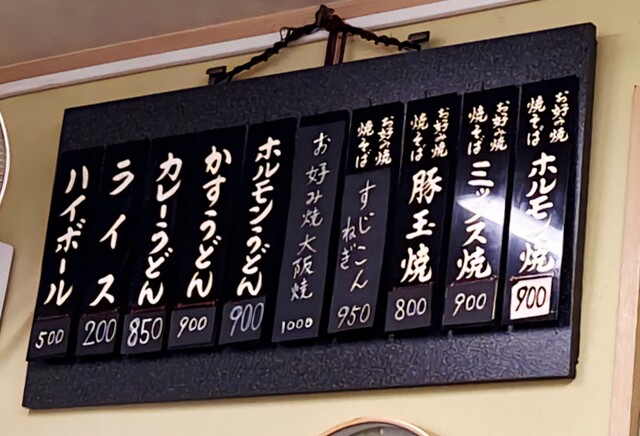 お好み焼
焼そば
ホルモン焼
900
お好み焼
焼そば
ミックス焼
900
お好み焼
焼そば
豚玉焼
800
お好み焼
焼そば
すじこん
ねぎ
950
お好み焼大阪焼
1000
ホルモンうどん
900
かすうどん
900
カレーうどん
850
ライス
200
ハイボール
500